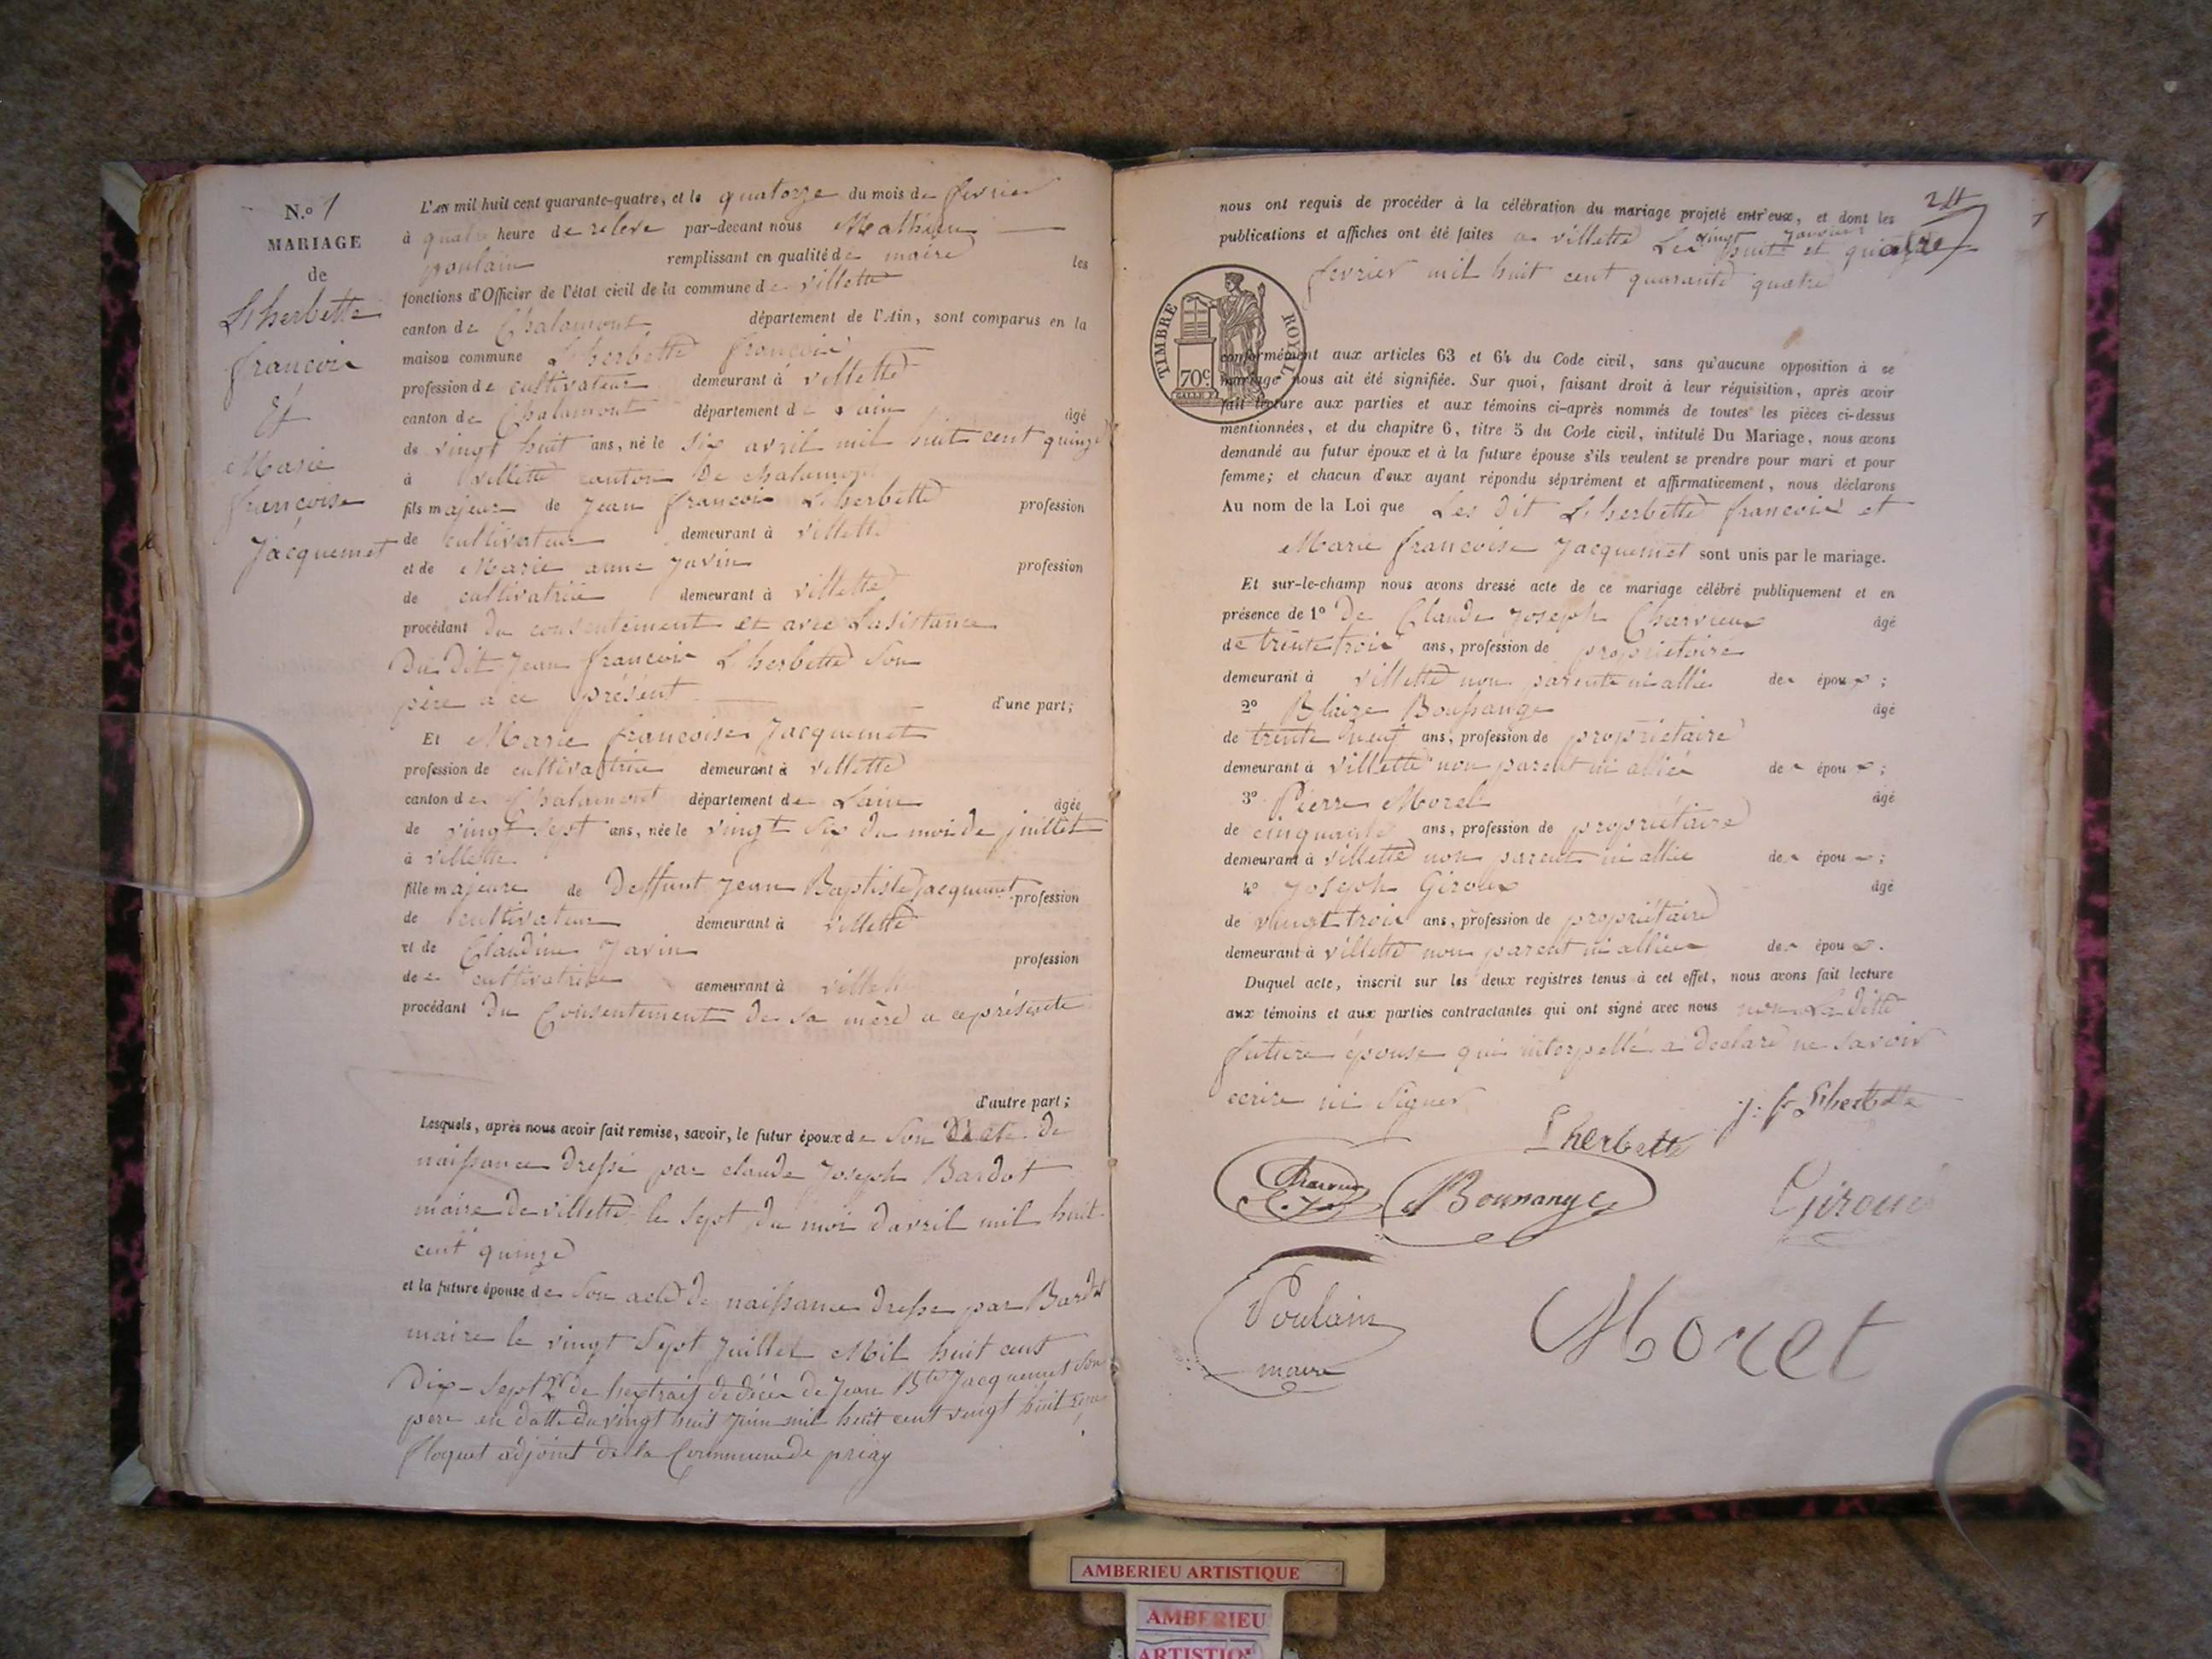 N.o 1
MARIAGE
de
Lherbette
francois
Et
Marie
françoise
Jacquemet
L'an mil huit cent quarante-quatre, et le quatorze du mois de fevrier
à quatre heure de relevé par-devant nous Mathieu
poulain remplissant en qualité de maire les
fonctions d'Officier de l'état civil de la commune de villette
canton de Chalamont département de l'Ain, sont comparus en la
maison commune Lherbette françois
profession de cultivateur demeurant à villette
canton de Chalamont département de ain âgé
de vingt huit ans, né le six avril mil huit cent quinze
à villette canton de chalamont
fils majeur de Jean francois Lherbette profession
de cultivateur demeurant à villette
et de Marie anne Javin profession
de cultivatrice demeurant à villette
procédant du consentement et avec Lasistance
Du Dit Jean francois Lherbette Son
père a ce présent d'une part;
Et Marie francoise Jacquemet
profession de cultivatrice demeurant à villette
canton de Chalamont département de Lain âgée
de vingt sept ans, née le vingt six du moi de juillet
à villette
fille majeure de Deffunt Jean Baptiste Jacquemet profession
de cultivateur demeurant à villette
et de Claudine Javin profession
de cultivatrice demeurant à villette
procédant du Consentement de sa mère a ce présente
d'autre part;
Lesquels, après nous avoir fait remise, savoir, le futur époux de Son acte de
naissance dressé par claude Joseph Bardot
maire de villette le sept du moi davril mil huit
cent quinze
et la future épouse de Son acte de naissance dressé par Bardot
maire le vingt Sept Juillet Mil huit cent
Dix-Sept 2o de lextrait de décès de Jean Bte Jacquemet Son
pere en datte du vingt huit Juin mil huit cent vingt huit
floquet adjoint de la Commune de priay
24
nous ont requis de procéder à la célébration du mariage projeté entr'eux, et dont les
publications et affiches ont été faites a villette Les vingt huit janvier et quatre
fevrier mil huit cent quarante quatre
TIMBRE ROYAL
70c
conformément aux articles 63 et 64 du Code civil, sans qu'aucune opposition à ce
mariage nous ait été signifiée. Sur quoi, faisant droit à leur réquisition, après avoir
fait lecture aux parties et aux témoins ci-après nommés de toutes les pièces ci-dessus
mentionnées, et du chapitre 6, titre 5 du Code civil, intitulé Du Mariage, nous avons
demandé au futur époux et à la future épouse s'ils veulent se prendre pour mari et pour
femme; et chacun d'eux ayant répondu séparément et affirmativement, nous déclarons
Au nom de la Loi que Les dit Lherbette francois et
Marie francoise Jacquemet sont unis par le mariage.
Et sur-le-champ nous avons dressé acte de ce mariage célébré publiquement et en
présence de 1o De Claude Joseph Charvieux âgé
de trente trois ans, profession de propriétaire
demeurant à villette non parente ni allié des époux;
2o Blaize Boussange âgé
de trente neuf ans, profession de propriétaire
demeurant à villette non parent ni allié des époux;
3o Pierre Morel âgé
de cinquante ans, profession de propriétaire
demeurant à villette non parent ni allié des époux;
4o Joseph Giroux âgé
de vingt trois ans, profession de propriétaire
demeurant à villette non parent ni allié des époux.
Duquel acte, inscrit sur les deux registres tenus à cet effet, nous avons fait lecture
aux témoins et aux parties contractantes qui ont signé avec nous non La ditte
future épouse qui interpellé a déclaré ne savoir
ecrire ni signer
Lherbette
j. f. Lherbette
Boussange
Giroux
Poulain
maire
Morel
AMBERIEU ARTISTIQUE
AMBERIEU